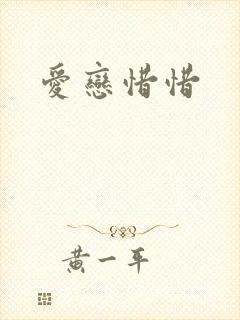 愛戀惜惜
黃一平